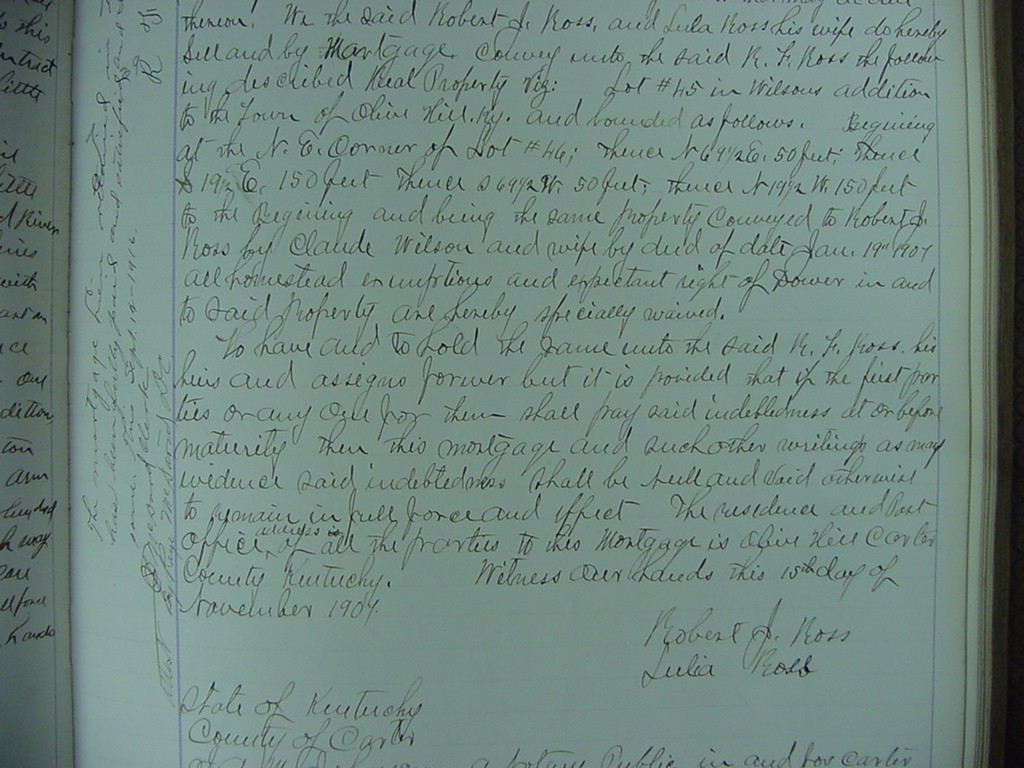 thereon. We the said Robert J. Ross, and Lula Ross his wife do hereby
Sell and by Mortgage Convey unto the said R. F. Ross the follow
ing described Real Property Viz: Lot #45 in Wilsons addition
to the Town of Olive Hill. Ky. and bounded as follows. Begining
at the N. E. Corner of Lot #46; thence N 69½ E. 50 feet; Thence
S 19½ E. 150 feet Thence S 69½ W. 50 feet; thence N 19½ W. 150 feet
to the Begining and being the same property Conveyed to Robert J.
Ross by Claude Wilson and wife by deed of date Jan. 19th 1907
all homestead exemptions and expectant right of Dower in and
to said Property are hereby specially waived.
To have and to hold the same unto the said R. F. Ross. his
heirs and assigns forever but it is provided that if the first par
ties or any one for them shall pay said indebtedness at or before
maturity then this mortgage and such other writings as may
evidence said indebtedness shall be Null and Void otherwise
to remain in full force and effect The residence and Post
office address of all the parties to this Mortgage is Olive Hill Carter
County Kentucky. Witness Our hands this 15th day of
November 1907.
Robert J. Ross
Lula Ross
State of Kentucky
County of Carter
a Notary Public in and for Carter
The mortgage lien retained in
has been fully paid and satisfied and
same. This Sept. 12-1916.
Clerk
Attest
D.C.
this
little
River
with
ce
one
dition,
ton
arm
hundred
way